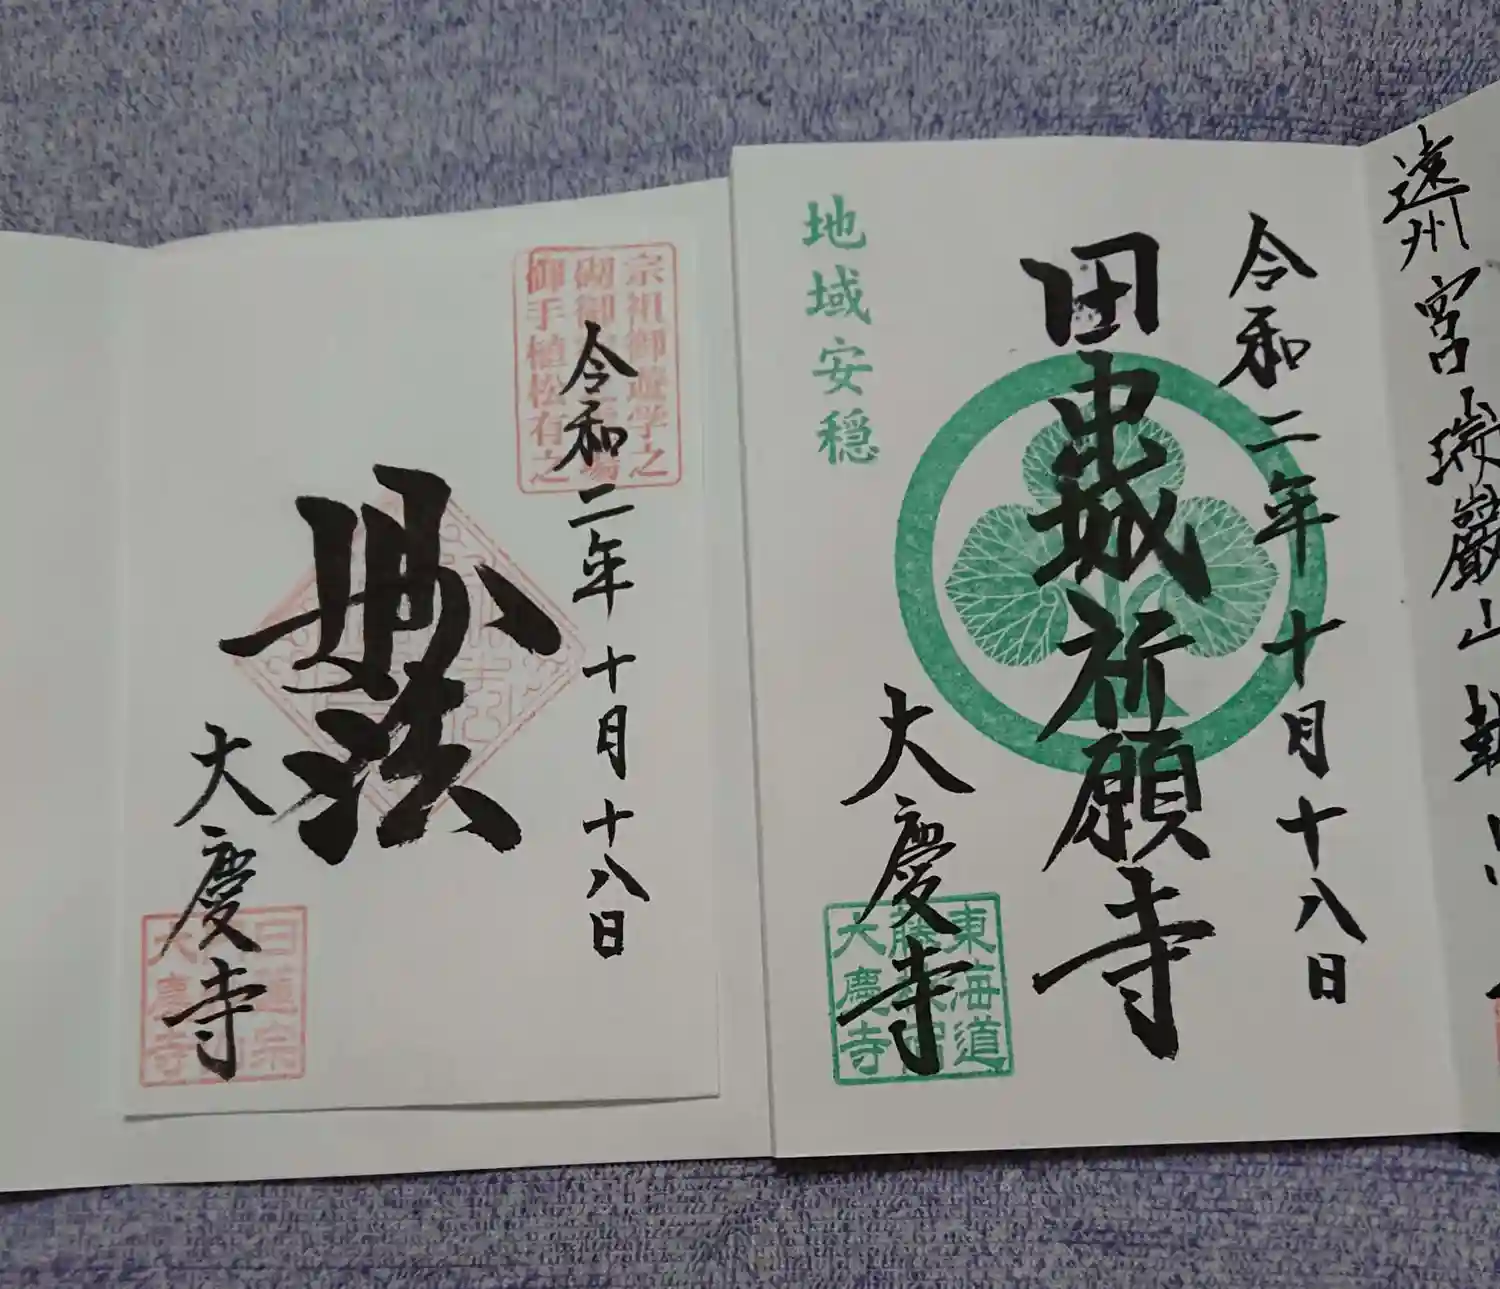 宗祖御遊学之
御手植松有之
令和二年十月十八日
妙法
大慶寺
日蓮宗
大慶寺
地域安穏
令和二年十月十八日
田中城祈願寺
大慶寺
東海道
藤枝宿
大慶寺
遠州宮
瑞巌山